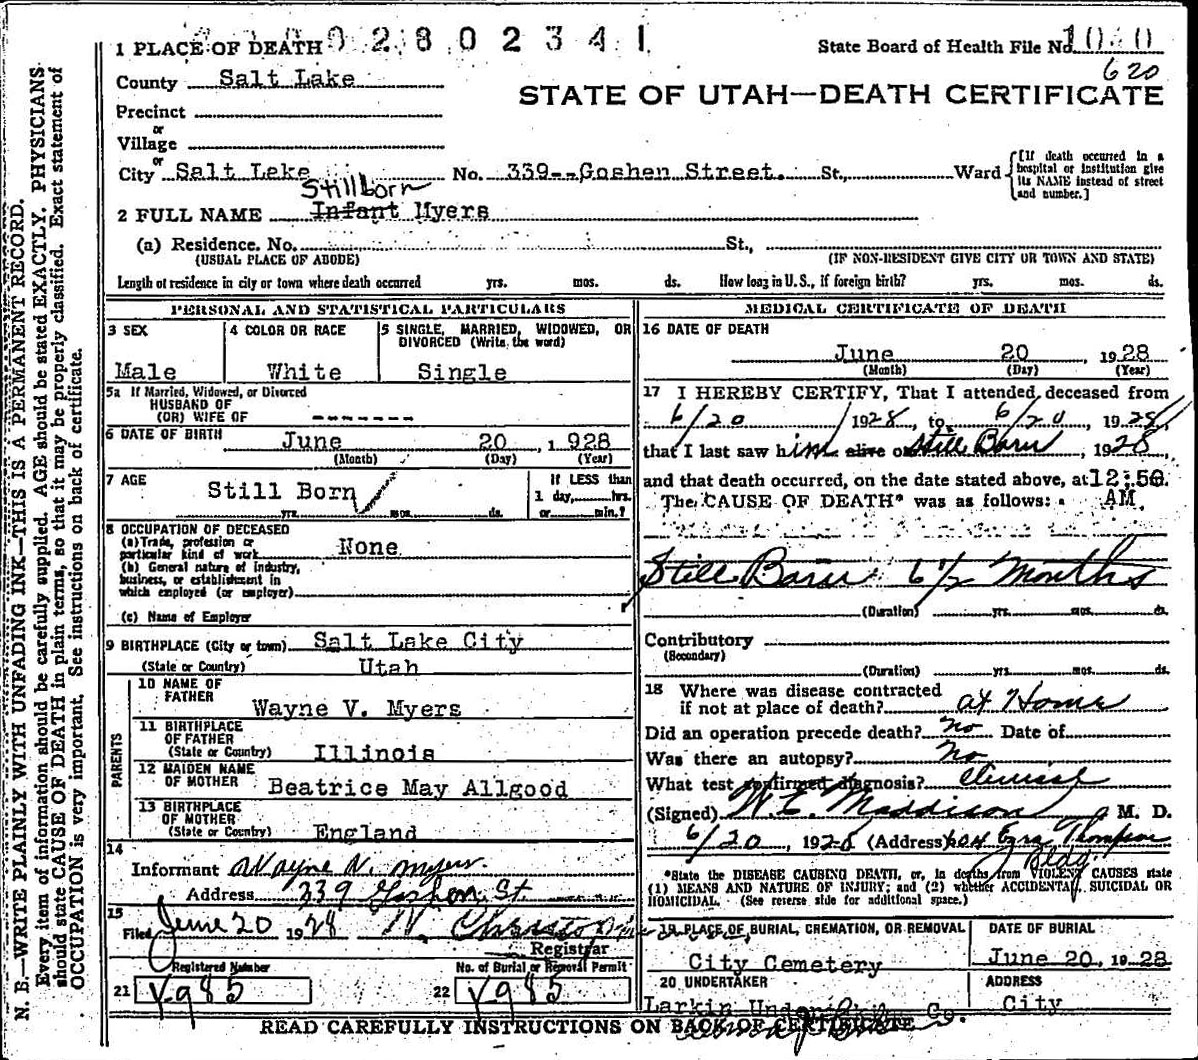 0 2 8 0 2 3 4 1
1 PLACE OF DEATH
State Board of Health File No. 1020
620
County Salt Lake
STATE OF UTAH—DEATH CERTIFICATE
Precinct
or
Village
or
City Salt Lake No. 339--Goshen Street. St., Ward
[If death occurred in a hospital or institution give its NAME instead of street and number.]
Stillborn
2 FULL NAME Infant Myers
(a) Residence. No. St.,
(USUAL PLACE OF ABODE) (IF NON-RESIDENT GIVE CITY OR TOWN AND STATE)
Length of residence in city or town where death occurred yrs. mos. ds. How long in U. S., if foreign birth? yrs. mos. ds.
PERSONAL AND STATISTICAL PARTICULARS
3 SEX
Male
4 COLOR OR RACE
White
5 SINGLE, MARRIED, WIDOWED, OR
DIVORCED (Write the word)
Single
5a If Married, Widowed, or Divorced
HUSBAND OF
(OR) WIFE OF -------
6 DATE OF BIRTH
June 20 , 1928
(Month) (Day) (Year)
7 AGE
Still Born
yrs. mos. ds.
If LESS than
1 day, hrs.
or min.?
8 OCCUPATION OF DECEASED
(a) Trade, profession or
particular kind of work None
(b) General nature of industry,
business, or establishment in
which employed (or employer)
(c) Name of Employer
9 BIRTHPLACE (City or town) Salt Lake City
(State or Country) Utah
PARENTS
10 NAME OF
FATHER
Wayne V. Myers
11 BIRTHPLACE
OF FATHER
(State or Country) Illinois
12 MAIDEN NAME
OF MOTHER Beatrice May Allgood
13 BIRTHPLACE
OF MOTHER
(State or Country) England
14
Informant Wayne V. Myers
Address 339 Goshen St.
15
Filed June 20 1928
Registrar
Registered Number
21 X-985
No. of Burial or Removal Permit
22 X985
MEDICAL CERTIFICATE OF DEATH
16 DATE OF DEATH
June 20 , 1928
(Month) (Day) (Year)
17 I HEREBY CERTIFY, That I attended deceased from
6/20 1928, to 6/20, 1928,
that I last saw him alive on Still Born, 1928,
and that death occurred, on the date stated above, at 12:50
The CAUSE OF DEATH* was as follows: AM.
Still Born 6 1/2 Months
(Duration) yrs. mos. ds.
Contributory
(Secondary)
(Duration) yrs. mos. ds.
18 Where was disease contracted
if not at place of death? at Home
Did an operation precede death? No Date of
Was there an autopsy? No
What test confirmed diagnosis? clinical
(Signed) W. E. Maddison M. D.
6/20, 1928 (Address) 604 Ezra Thompson
Bldg.
*State the DISEASE CAUSING DEATH, or, in deaths from VIOLENT CAUSES state
(1) MEANS AND NATURE OF INJURY; and (2) whether ACCIDENTAL, SUICIDAL OR
HOMICIDAL. (See reverse side for additional space.)
19 PLACE OF BURIAL, CREMATION, OR REMOVAL
City Cemetery
DATE OF BURIAL
June 20, 1928
20 UNDERTAKER
Larkin Co.
ADDRESS
City
READ CAREFULLY INSTRUCTIONS ON BACK OF CERTIFICATE
N. B.—WRITE PLAINLY WITH UNFADING INK—THIS IS A PERMANENT RECORD.
Every item of information should be carefully supplied. AGE should be stated EXACTLY. PHYSICIANS
should state CAUSE OF DEATH in plain terms, so that it may be properly classified. Exact statement of
OCCUPATION is very important. See instructions on back of certificate.